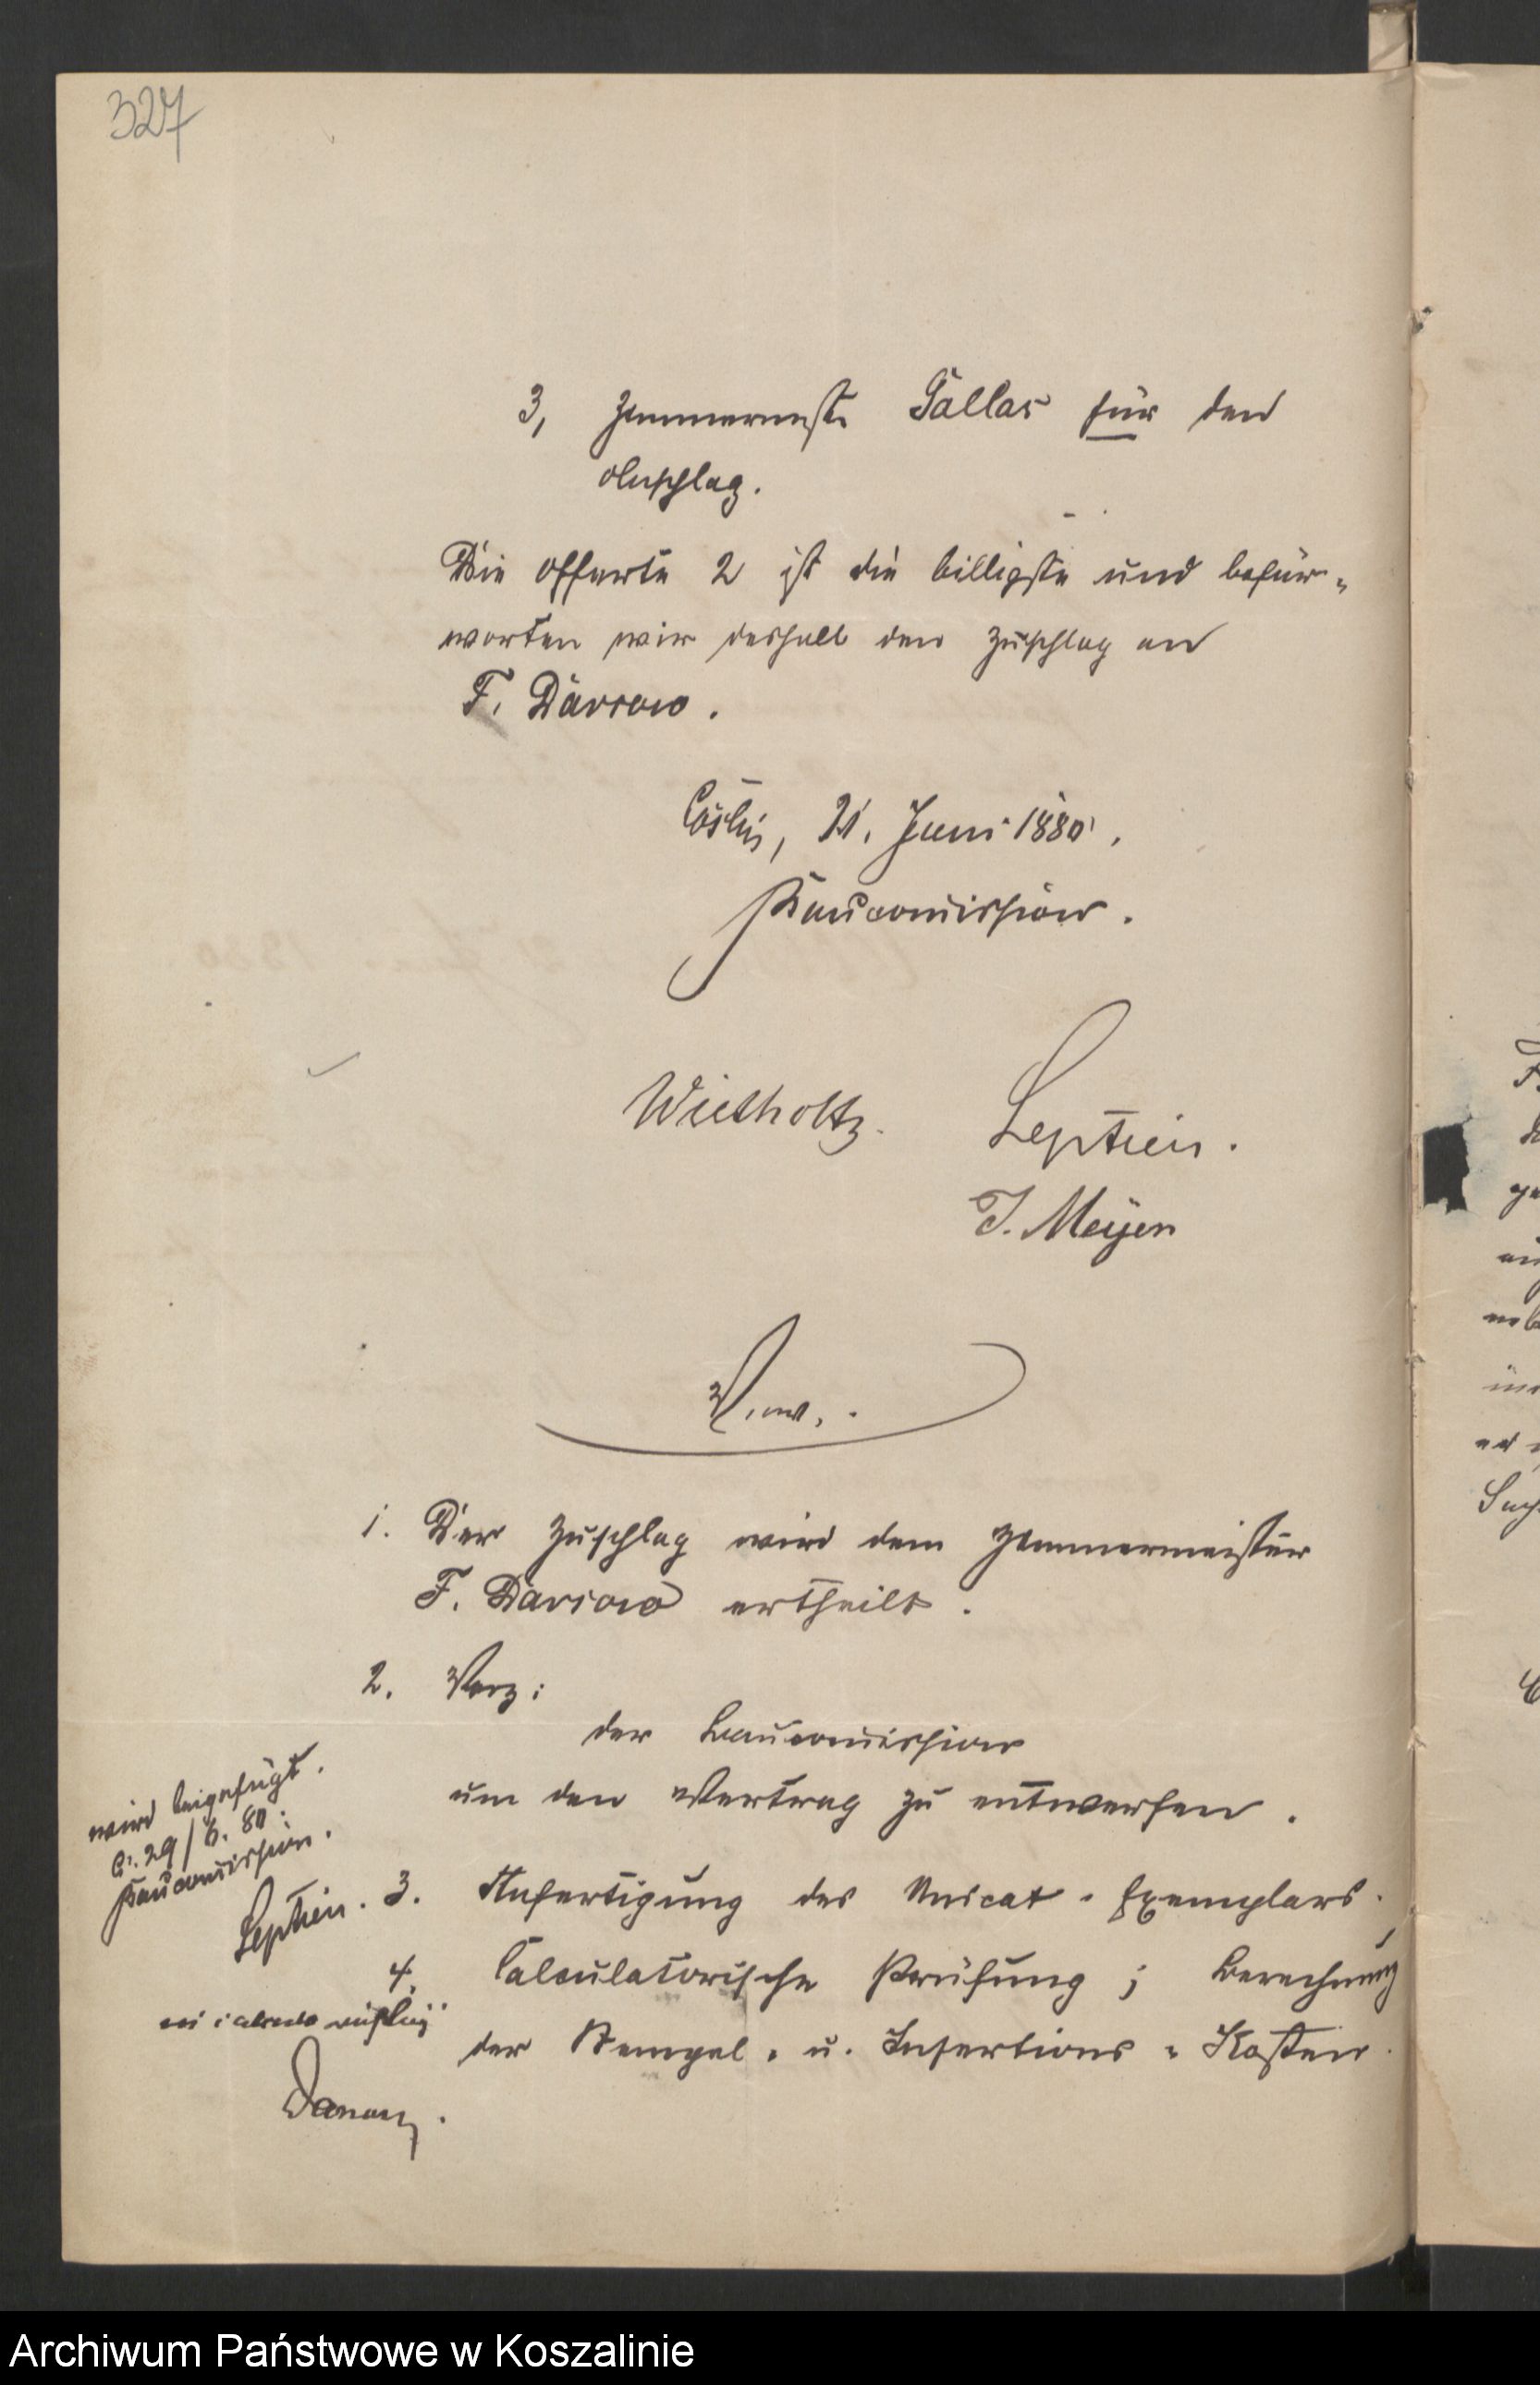 327
3, Zimmermstr. Gallas für den
Anschlag.
Die Offerte 2 ist die billigste und befür-
worten wir deshalb den Zuschlag an
F. Darsow.
Cöslin, 21. Juni 1880.
Baucomission.
Wietholtz.
Leptien.
J. Meyer
1. Der Zuschlag wird dem Zimmermeister
F. Darsow ertheilt.
2. Vorz:
der Baucomission
um den Vertrag zu entwerfen.
wird beigefügt.
C. 29/6. 80.
Baucomission.
Leptien.
3. Anfertigung des Unicat-Exemplars.
4. Calculatorische Prüfung; Berechnung
der Stempel- u. Insertions-Kosten.
in calculo richtig
Archiwum Państwowe w Koszalinie